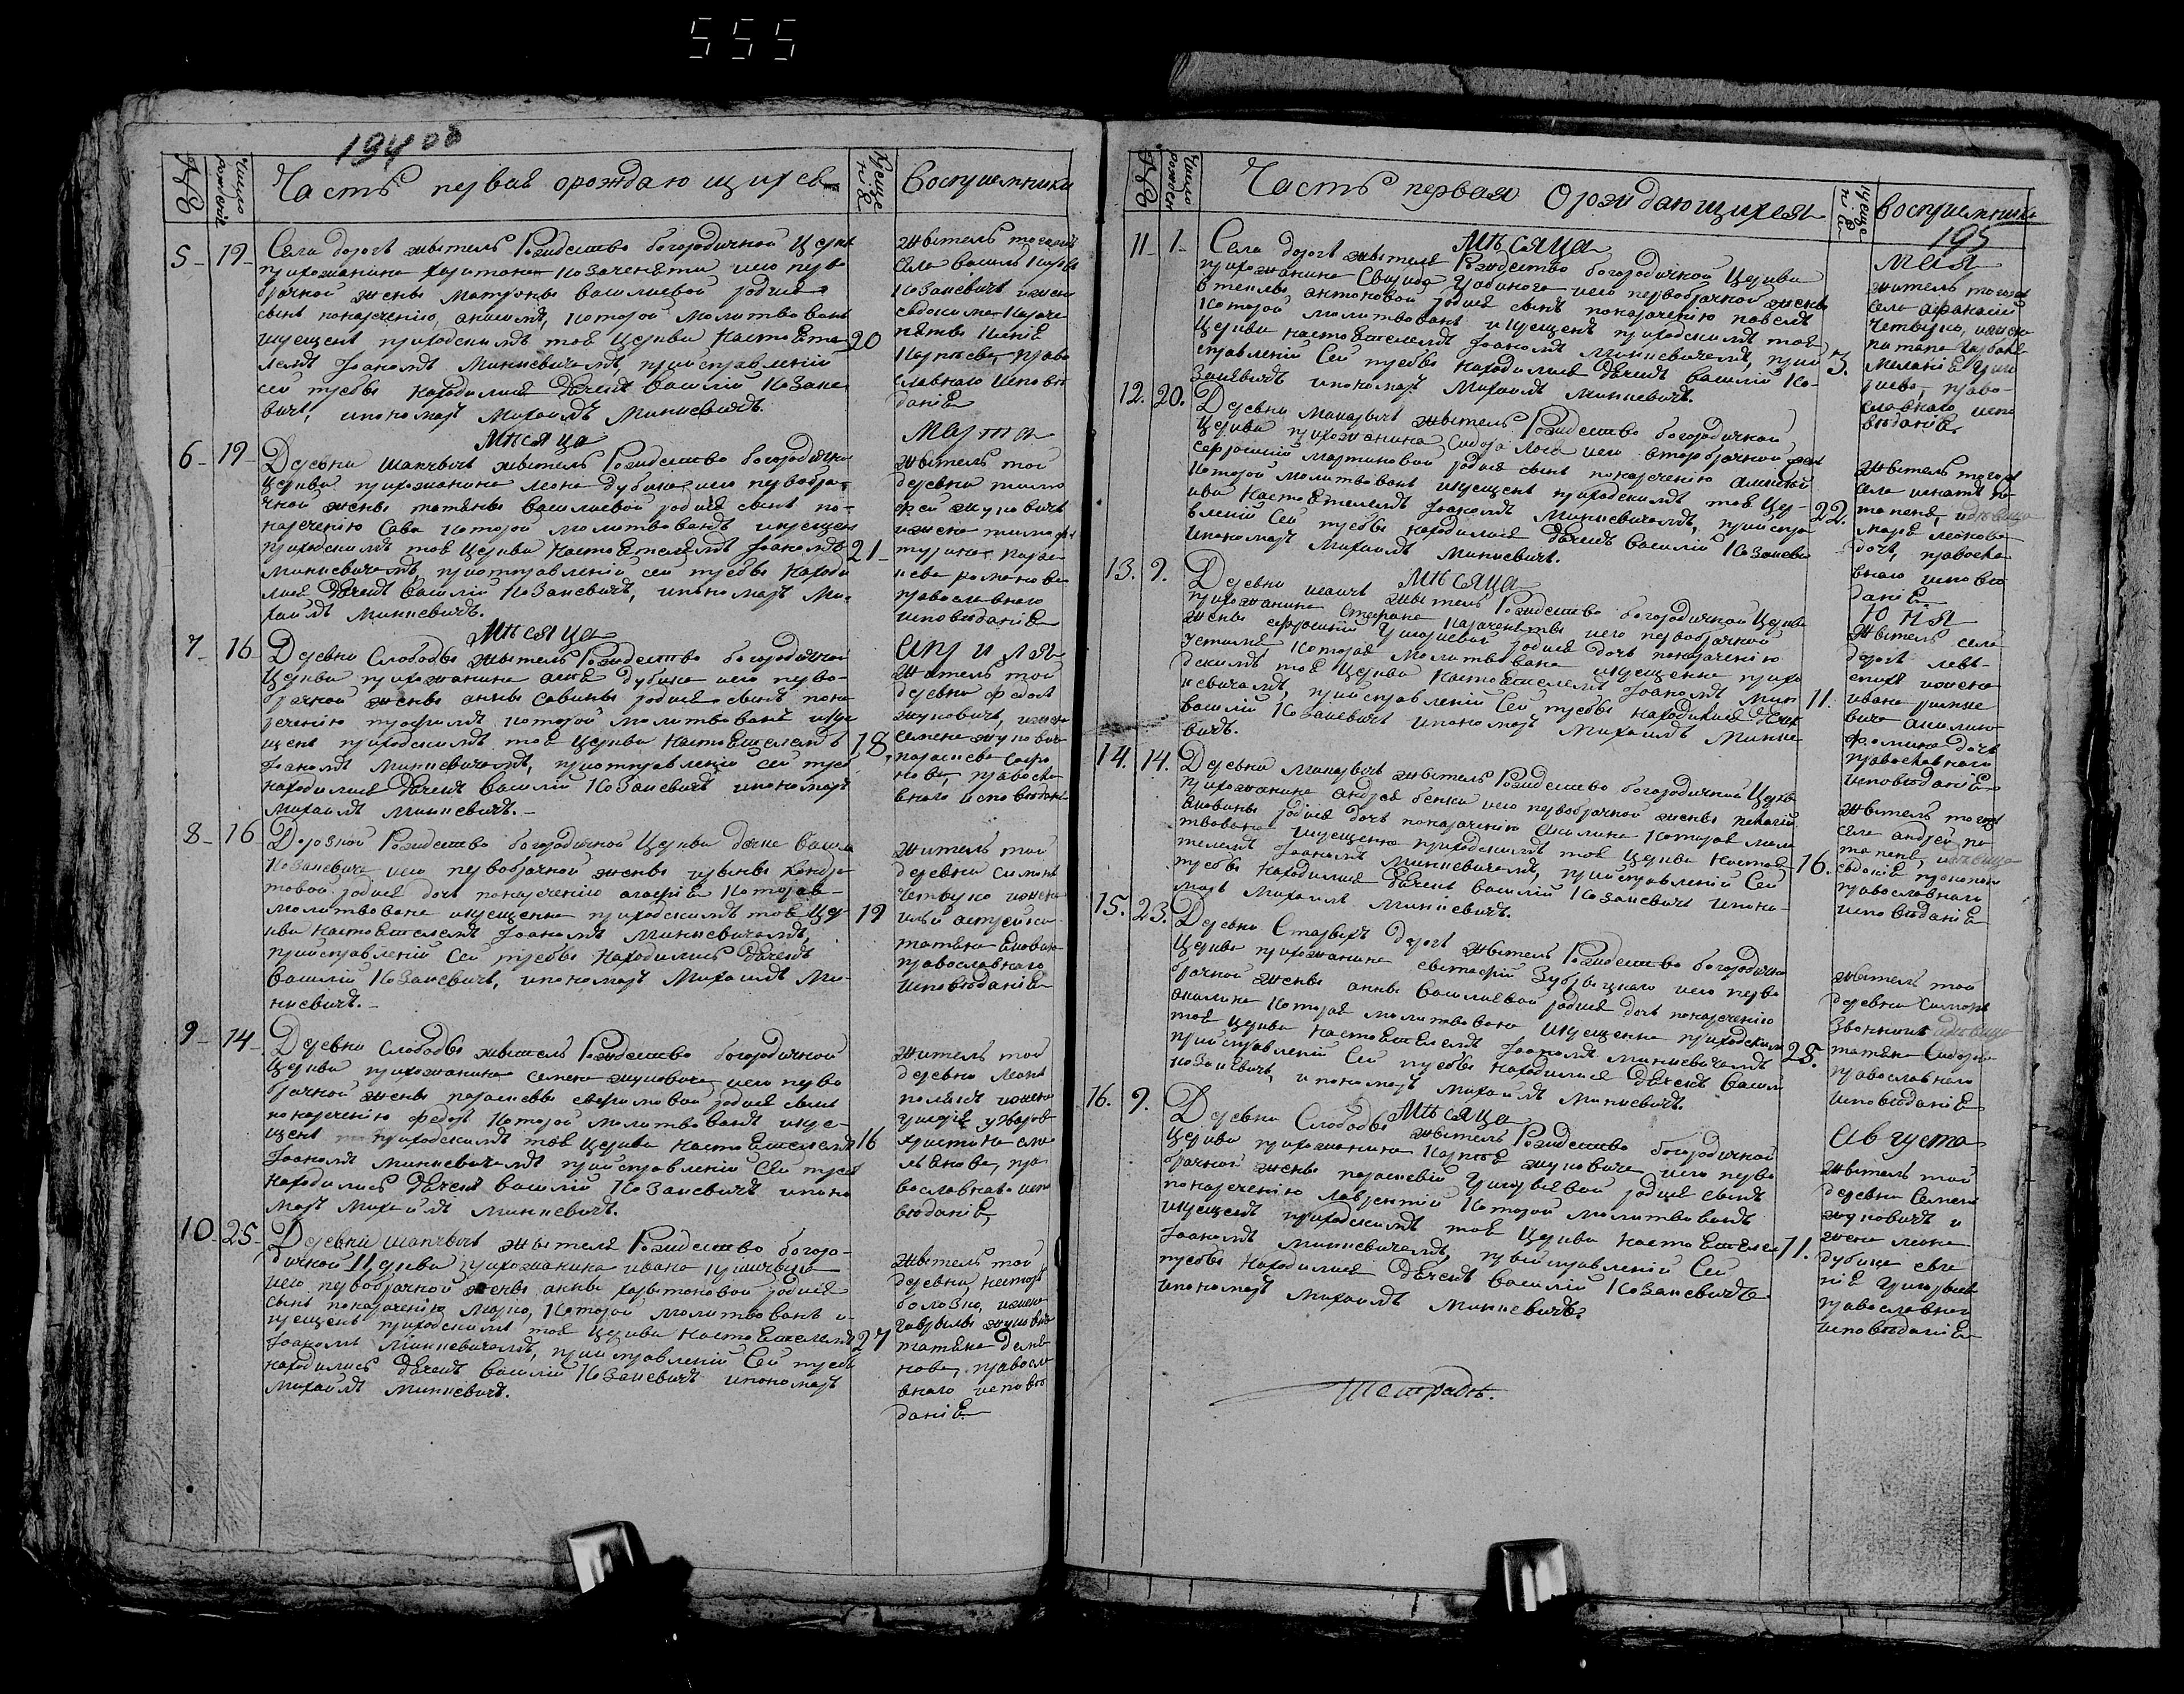 555
194 об
№
Число рожденій
Часть первая орождающихся
Креще нія
Воспріемники
5 - 19 -
Села дорогъ жытель Рождество богородичной Церкви
прихожанина харитона Козаченяти него перво
брачной жены матроны василиевой родился
сынъ понаречению, который молитвованъ
икрещенъ приходскимъ тоя Церкви Настоятe
лемъ Іоанномъ Минкевичемъ, приисправленій
сей требы находился дьячекъ василій Козаке
вичъ, ипономарь Михаилъ Минкевичъ.
20
житель тогожъ
Села
Козакевичъ ижена
евдокима Караче
няти
Карпова, право
славнаго исповѣ
данія
Мѣсяца
Марта
6 - 19 -
Деревни шапчичъ жытель Рождество богородична
Церкви прихожанина леона дубика него первобра-
чной жены татьяны василиевой родился сынъ по-
наречению Сава который молитвованъ икрещенъ
приходскимъ тоя Церкви Настоятелемъ Іоанномъ
Минкевичемъ, приотправленій сей требы находи
лся дьячекъ василій Козакевичъ, ипономарь Ми-
хаилъ Минкевичъ.
21 -
жытель той
деревни тимо
фей жуковичъ
ижена
романова
православнаго
исповѣданія
Мѣсяца
Априля
7 - 16
Деревни Слободы жытель Рождество богородичной
Церкви прихожанина дубика него перво-
брачной жены анны савины родился сынъ пона
речению трофимъ который молитвованъ икре
щенъ приходскимъ тоя Церкви Настоятелемъ
Іоанномъ Минкевичемъ, приотправленій сей треб
находился дьячекъ василій Козакевичъ ипономарь
михаилъ минкевичъ. -
18.
Житель той
деревни федоръ
жуковичъ, ижена
семена жуковича
параскева
правосла
внаго исповѣдані
8 - 16
Дорожной Рождество богородичной Церкви дячка Васил
Козакевича него первобрачной жены ирыны кондра
товой родился дочь понаречению агафія Которая
молитвована икрещенна приходскимъ тоя Цер-
кви Настоятелемъ Іоанномъ Минкевичемъ,
приисправленій Сей требы Находились дьячекъ
василій Козакевичъ, ипономарь Михаилъ Ми-
нкевичъ. -
19
житель той
деревни симонъ
Четвурко ижена
татьяна
православнаго
исповѣданія
9 - 14 -
Деревни Слободы жытель Рождество богородичной
Церкви прихожанина Семена жуковича него перво
брачной жены параскевы родился сынъ
понаречению федоръ Который молитвованъ икре-
щенъ приходскимъ тоя Церкви Настоятелемъ
Іоанномъ минкевичемъ приисправленій Сей требы
Находились дьячекъ василій Козакевичъ ипоно
марь Михаилъ минкевичъ.
16
житель той
деревни леонъ
ижена
христина
пра
вославнаго испо
вѣданія,
10 - 25 -
Деревни шапчичъ жытеля Рождество богоро-
дичной Церкви прихожанина ивана
него первобрачной жены анны харытоновой родился
сынъ понаречению марко, Который молитвованъ и-
крещенъ приходскимъ тоя Церкви Настоятелемъ
Іоанномъ Минкевичемъ, приисправленій Сей требы
находились дьячекъ василій Козакевичъ ипономарь
михаилъ минкевичъ.
27
житель той
деревни несторъ
болозко, ижена
гаврылы жуковича
татьяна демья
нова, правосла
внаго исповѣ
данія
№
Число рожден
Часть первая Орождающихся
креще нія
воспріемники
195
Мѣсяца
Мая
11 - 1 -
Села дорогъ жытель Рождество богородичной Церкви
прихожанина Свирида него первобрачной жены
антоновой родился сынъ понаречению павелъ
Который молитвованъ икрещенъ приходскимъ тоя
Церкви настоятелемъ Іоанномъ Минкевичемъ, прии
справленій Сей требы находился дьячекъ василій Ко-
закевичъ ипономарь Михаилъ минкевичъ.
3.
житель тогожъ
села афанасій
Четвурко, ижена
Меланія Григ
риева, право-
славнаго испо
вѣданія
12. 20.
Деревни Макаричъ жытель Рождество богородичной
Церкви прихожанина Сидора него второбрачной жен
Ефросиній мартиновой родился сынъ понаречению алексѣй
Который молитвованъ икрещенъ приходскимъ тоя Цер-
кви Настоятелемъ Іоанномъ Минкевичемъ, приисправ
вленій Сей требы находился дьячекъ василій Козакеви
ипономарь Михаилъ минкевичъ.
22.
жытель тогожъ
села игнатъ по-
тапеня, идѣвица
марья леонова
дочь, правосла
внаго исповѣ
данія
Мѣсяца
Юня
13. 9.
Деревни жытель Рождество богородичной Церкви
прихожанина Стефана Караченяти него первобрачной
жены ефросиній Григориевой родился дочь понаречению
устимія Которая молитвована икрещенна прихо
дскимъ тоя Церкви Настоятелемъ Іоанномъ Мин
кевичемъ, приисправленій Сей требы находился дьячекъ
василій Козакевичъ ипономарь Михаилъ Минке
вичъ.
11.
жытель села
дорогъ
ижена
ивана минке
вича акилина
фомина дочь
православнаго
исповѣданія
14. 14.
Деревни Макаричъ жытель Рождество богородичной Церкв
прихожанина андрея бенка него первобрачной жены пелагій
родился дочь понаречению акилина Которая моли
твована икрещенна приходскимъ тоя Церкви Настоя
телемъ Іоанномъ Минкевичемъ, приисправленій Сей
требы находился дьячекъ василій Козакевичъ ипоно-
марь Михаилъ Минкевичъ.
16.
жытель тогожъ
села андрей по
тапеня, идѣвица
евдокія прокопова
православнаго
исповѣданія
15. 23.
Деревни Старыхъ дорогъ жытель Рождество богородично
Церкви прихожанина евстафій Зубрыцкаго него перво
брачной жены анны василиевой родился дочь понаречению
акилина Которая молитвована икрещенна приходским
тоя Церкви Настоятелемъ Іоанномъ минкевичемъ
приисправленій Сей требы находился дьячекъ васили
козакевичъ, ипономарь михаилъ минкевичъ.
25.
житель той
деревни симонъ
Звонникъ идѣвица
татьяна Сидоров
православнаго
исповѣданія
Мѣсяца
Августа
16. 9.
Деревни Слободы жытель Рождество богородичной
Церкви прихожанина Карпа жуковича него перво
брачной жены параскевій Григориевой родился сынъ
понаречению лаврентій Который молитвованъ
икрещенъ приходскимъ тоя Церкви Настоятелем
Іоанномъ минкевичемъ, приисправленій Сей
требы находился дьячекъ василій Козакевичъ
ипономарь Михаилъ минкевичъ.
11.
жытель той
деревни Семенъ
жуковичъ и
жена леона
дубика евге
нія Григорьев
православнаго
исповѣданія
тетрадь.